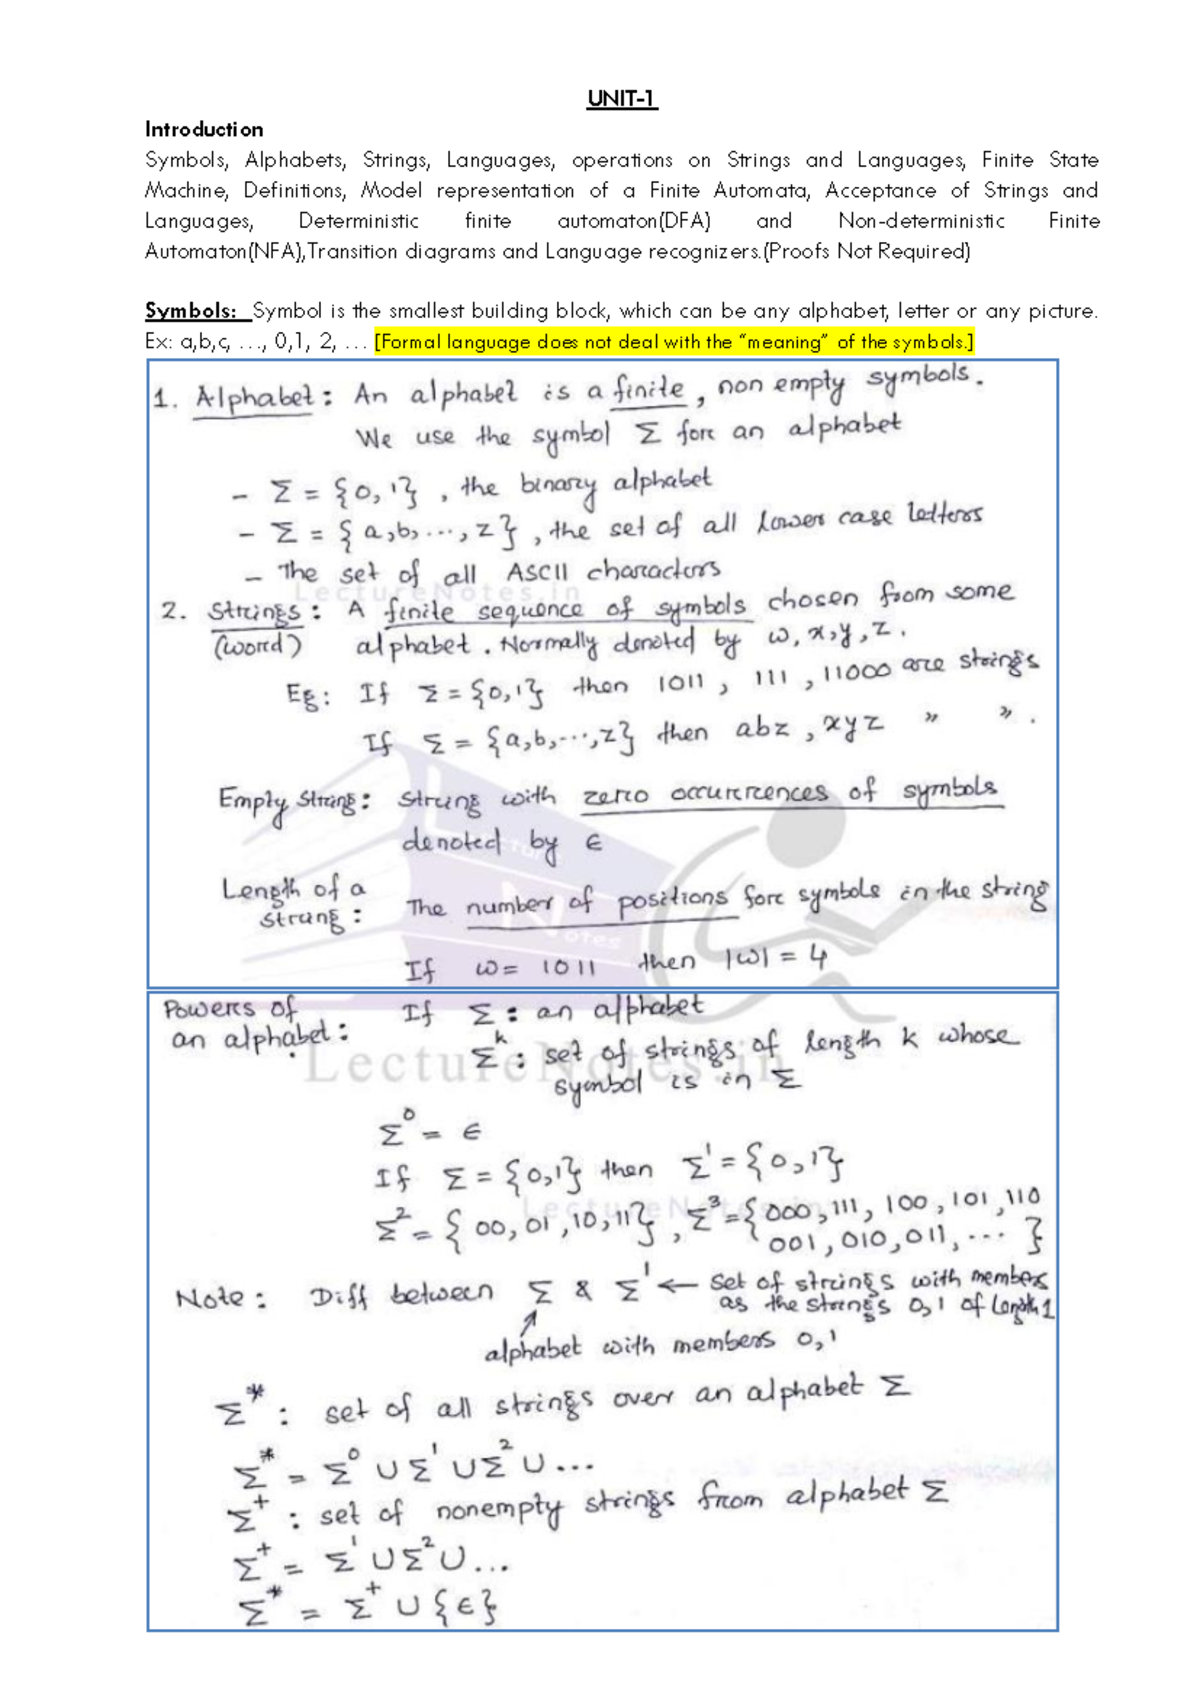 UNIT-1
Introduction
Symbols, Alphabets, Strings, Languages, operations on Strings and Languages, Finite State
Machine, Definitions, Model representation of a Finite Automata, Acceptance of Strings and
Languages, Deterministic finite automaton(DFA) and Non-deterministic Finite
Automaton(NFA),Transition diagrams and Language recognizers.(Proofs Not Required)
Symbols: Symbol is the smallest building block, which can be any alphabet, letter or any picture.
Ex: a,b,c, …, 0,1, 2, … [Formal language does not deal with the “meaning” of the symbols.]
1. Alphabet: An alphabet is a finite, non empty symbols.
We use the symbol Σ for an alphabet
- Σ = {0,1}, the binary alphabet
- Σ = {a,b,...,z}, the set of all lower case letters
- The set of all ASCII characters
LectureNotes.in
2. Strings: A finite sequence of symbols chosen from some
(word) alphabet. Normally denoted by w,x,y,z.
Eg: If Σ = {0,1} then 1011, 111, 11000 are strings
If Σ = {a,b,...,z} then abz, xyz " ".
Empty String: String with zero occurrences of symbols
denoted by ϵ
Length of a string: The number of positions for symbols in the string
If w = 1011 then |w| = 4
Powers of an alphabet: If Σ : an alphabet
Σ^k : set of strings of length k whose
symbol is in Σ
LectureNotes.in
Σ^0 = ϵ
If Σ = {0,1} then Σ^1 = {0,1}
LectureNotes.in
Σ^2 = {00,01,10,11}, Σ^3 = {000,111,100,101,110
001,010,011,... }
Note: Diff between Σ & Σ^1 ← Set of strings with members
as the strings 0,1 of length 1
alphabet with members 0,1
Σ^* : set of all strings over an alphabet Σ
Σ^* = Σ^0 ∪ Σ^1 ∪ Σ^2 ∪ ...
Σ^+ : set of nonempty strings from alphabet Σ
Σ^+ = Σ^1 ∪ Σ^2 ∪ ...
Σ^* = Σ^+ ∪ {ϵ}